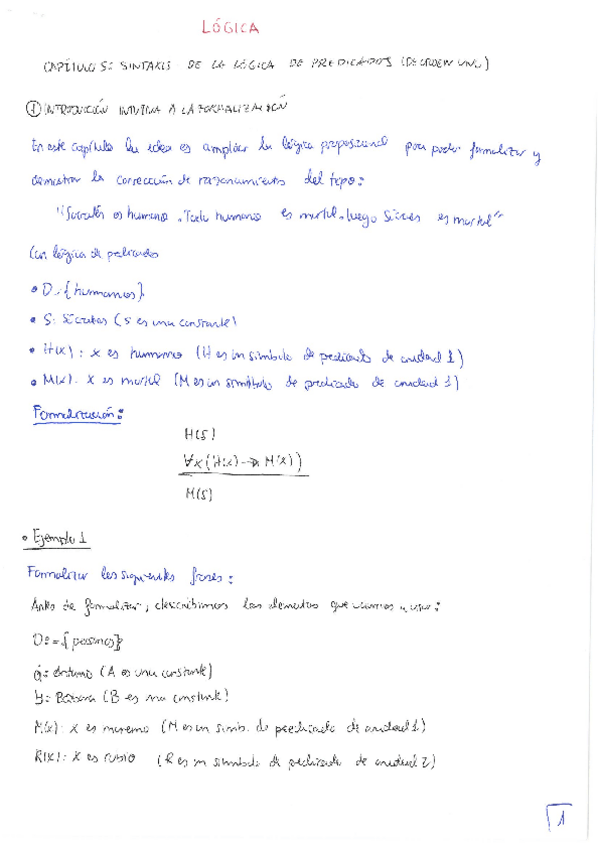 LÓGICA
CAPÍTULO 5: SINTAXIS DE LA LÓGICA DE PREDICADOS (DE ORDEN UNO)
① INTRODUCCIÓN INTUITIVA A LA FORMALIZACIÓN
En este capítulo la idea es ampliar la lógica proposicional para poder formalizar y
demostrar la corrección de razonamientos del tipo:
"Sócrates es humano. Todo humano es mortal. luego es mortal"
Con lógica de predicados
• D = {humanos}
• S: Sócrates (S es una constante)
• H(x): x es humano (H es un símbolo de predicado de aridad 1)
• M(x): x es mortal (M es un símbolo de predicado de aridad 1)
Formalización:
H(S)
∀x(H(x) → M(x))
M(S)
• Ejemplo 1
Formalizar las siguientes frases:
Antes de formalizar, describimos los elementos que vamos a usar:
D = {personas}
a: Antonio (A es una constante)
b: Bárbara (B es una constante)
M(x): x es moreno (M es un simb. de predicado de aridad 1)
R(x): x es rubio (R es un símbolo de predicado de aridad 2)
1